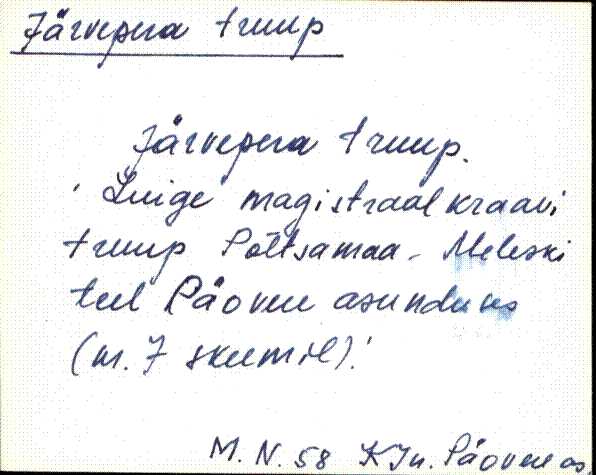 Järvepera truup
Järvepera truup.
'Luige magistraalkraavi
truup Põltsamaa - Meleski
teel Päovere asunduses
(nr. 7 skeemil).'
M. N. 58 KJn. Päovere as.